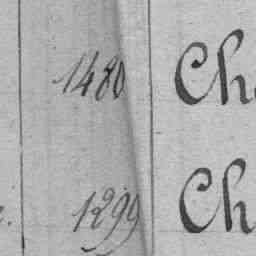 1480 Ch
1299 Ch